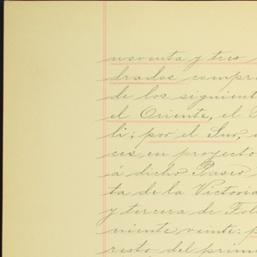 noventa y tres
drados compr
de los siguient
el Oriente, el
li; por el Sur,
ces en proyecto
á dicho Paseo
ta de la Victoria
y tercera de Fol
niente veinte: p
resto del prim